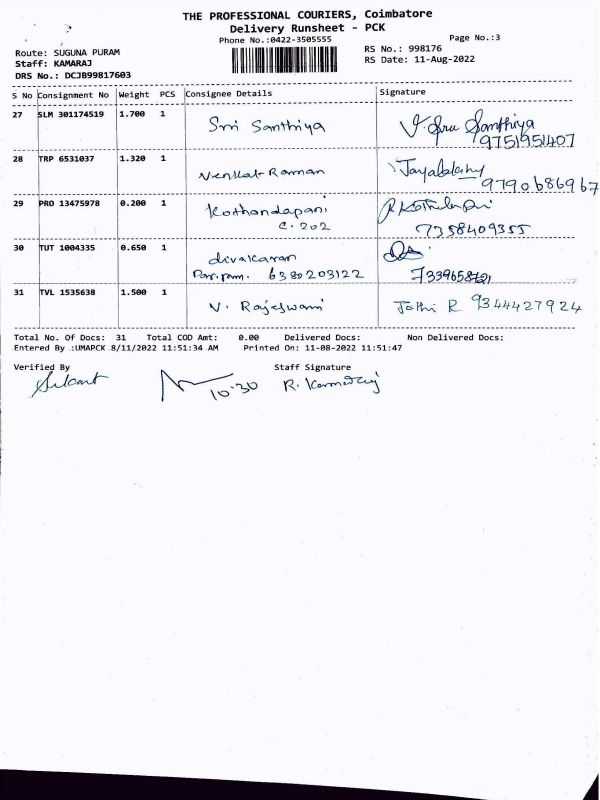 THE PROFESSIONAL COURIERS, Coimbatore
Delivery Runsheet - PCK
Phone No.:0422-3505555
Page No.:3
Route: SUGUNA PURAM
RS No.: 998176
Staff: KAMARAJ
RS Date: 11-Aug-2022
DRS No.: DCJB99817603
S No Consignment No Weight PCS Consignee Details Signature
27 SLM 301174519 1.700 1 Sri Santhiya V. Sri Santhiya
9751951407
28 TRP 6531037 1.320 1 Venkat-Raman
9790686967
29 PRO 13475978 0.200 1 Kothandapani
C. 202 7358409355
30 TUT 1004335 0.650 1 divakaran
6380203122
31 TVL 1535638 1.500 1 V. Rajeswari Jothi R 9344427924
Total No. Of Docs: 31 Total COD Amt: 0.00 Delivered Docs: Non Delivered Docs:
Entered By :UMAPCK 8/11/2022 11:51:34 AM Printed On: 11-08-2022 11:51:47
Verified By Staff Signature
10:30 R. Kamaraj